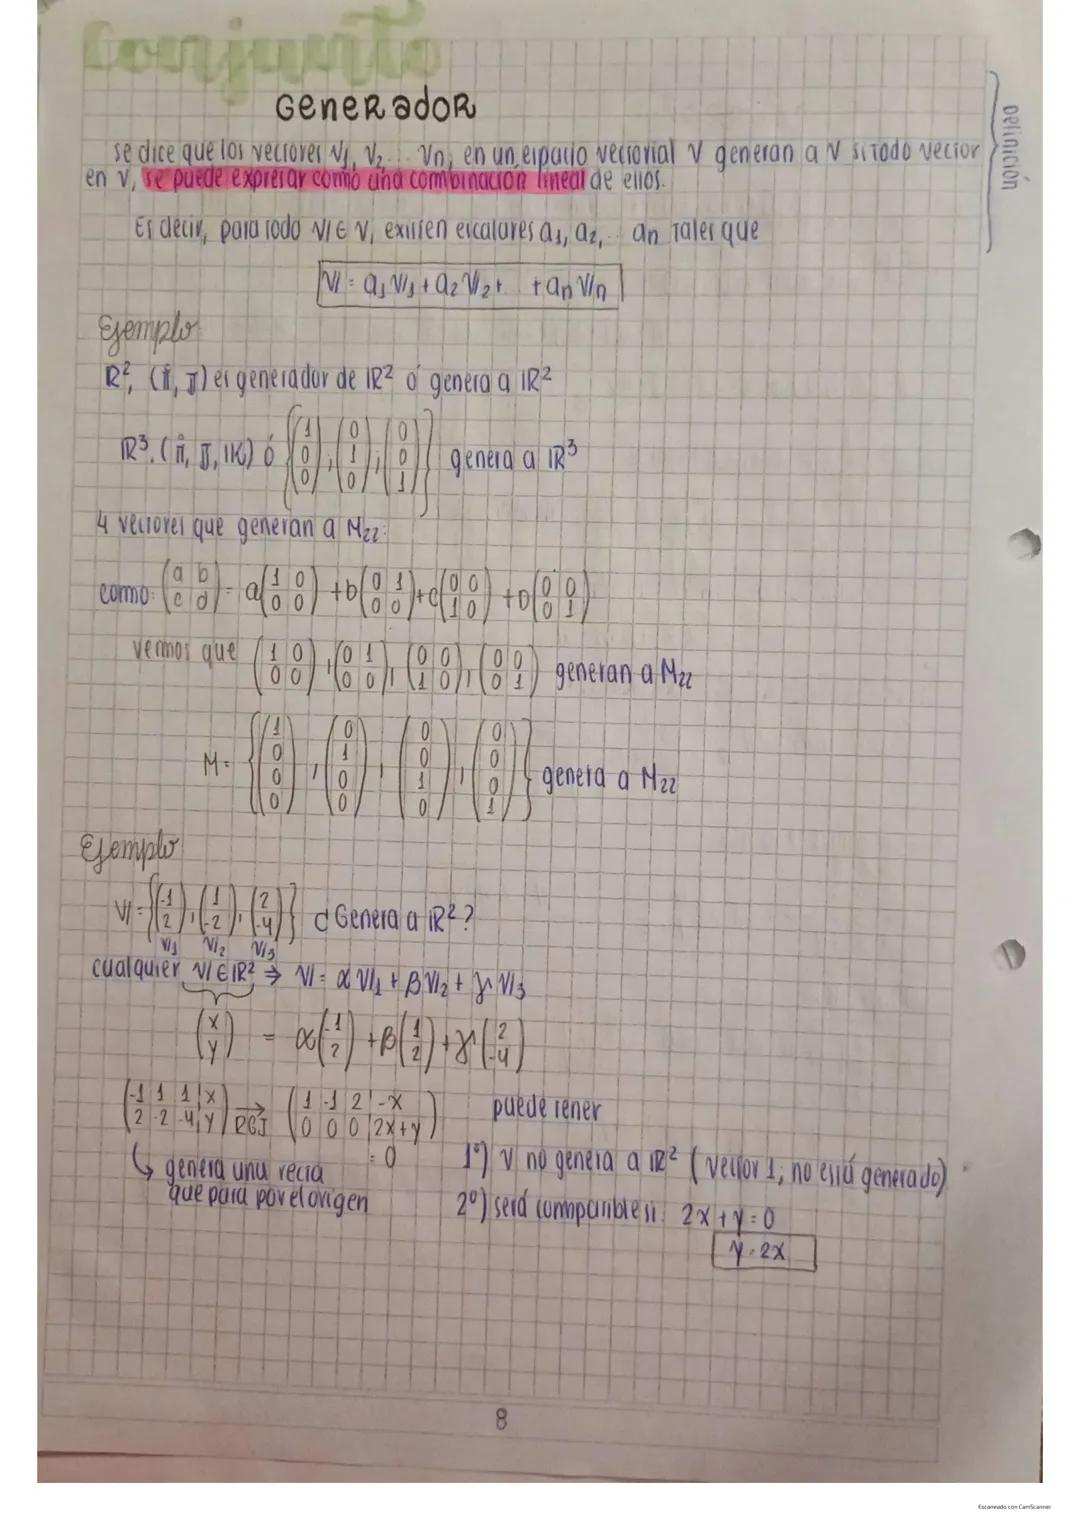 conjunto
Generador
Definición
se dice que los vectores V1, V2 ... Vn, en un espacio vectorial V generan a V si todo vector
en V, se puede expresar como una combinación lineal de ellos.
Es decir, para todo V ∈ V, existen escalares a1, a2, ... an Tales que
V = a1 V1 + a2 V2 + ... + an Vn
Ejemplo
R², (î, J) es generador de IR² ó genera a IR²
IR³. (î, J, IK) ó {(1 0 0), (0 1 0), (0 0 1)} genera a IR³
4 vectores que generan a M22:
como: (a b / c d) = a(1 0 / 0 0) + b(0 1 / 0 0) + c(0 0 / 1 0) + D(0 0 / 0 1)
vemos que (1 0 / 0 0), (0 1 / 0 0), (0 0 / 1 0), (0 0 / 0 1) generan a M22
M = {(1 0 0 0), (0 1 0 0), (0 0 1 0), (0 0 0 1)} genera a M22
Ejemplo
V = {(-1 / 2), (1 / -2), (2 / -4)} ¿Genera a IR²?
V1 V2 V3
cualquier V ∈ IR² ⇒ V = α V1 + β V2 + γ V3
(x / y) = α(-1 / 2) + β(1 / 2) + γ(2 / -4)
(-1 1 1 | x / 2 -2 -4 | y) → RGJ (1 -1 2 | -x / 0 0 0 | 2x+y) puede tener
= 0
genera una recta
que pasa por el origen
1°) V no genera a IR² (vector 1; no está generado)
2°) será compatible si: 2x + y = 0
y = 2x
8
Escaneado con CamScanner